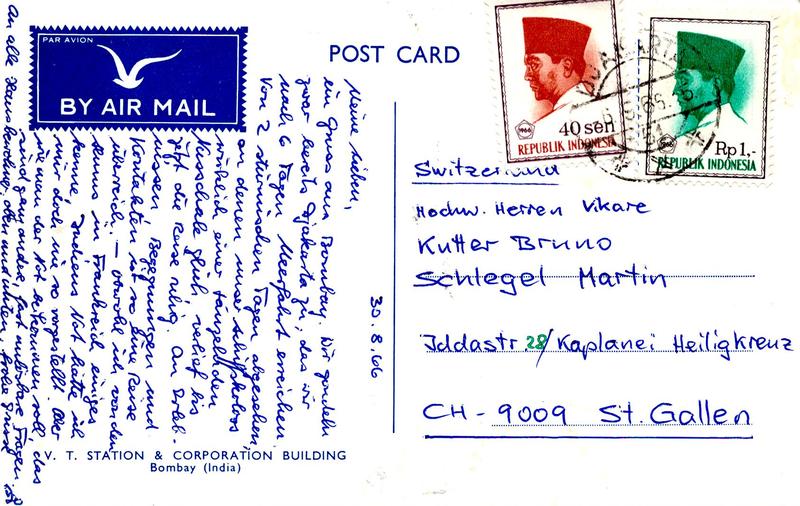 PAR AVION
BY AIR MAIL
POST CARD
1966
40 sen
REPUBLIK INDONESIA
1966
Rp 1.-
REPUBLIK INDONESIA
30.8.66
Meine Lieben,
ein Gruss aus Bombay. Wir gondeln
zwar bereits Djakarta zu, das wir
nach 6 Tagen Meerfahrt erreichen.
Von 2 stürmischen Tagen abgesehen,
an denen unser Schiffskoloss
wirklich einer tänzelnden
Nussschale glich, verlief bis
jetzt die Reise ruhig. An
Begegnungen und
Kontakten ist so eine Reise
überreich. – obwohl ich von den
Slums in Frankreich einiges
kenne, Indiens Not hatte ich
mir doch nie so vorgestellt. Aber
wie man der Not beikommen soll, das
sind ganz andre, fast unlösbare Fragen.
An alle Hausbewohner, oben und unten, frohe Grüsse
Switzerland
Hochw. Herren Vikare
Kutter Bruno
Schlegel Martin
Iddastr. 28/Kaplanei Heiligkreuz
CH-9009 St. Gallen
V. T. STATION & CORPORATION BUILDING
Bombay (India)